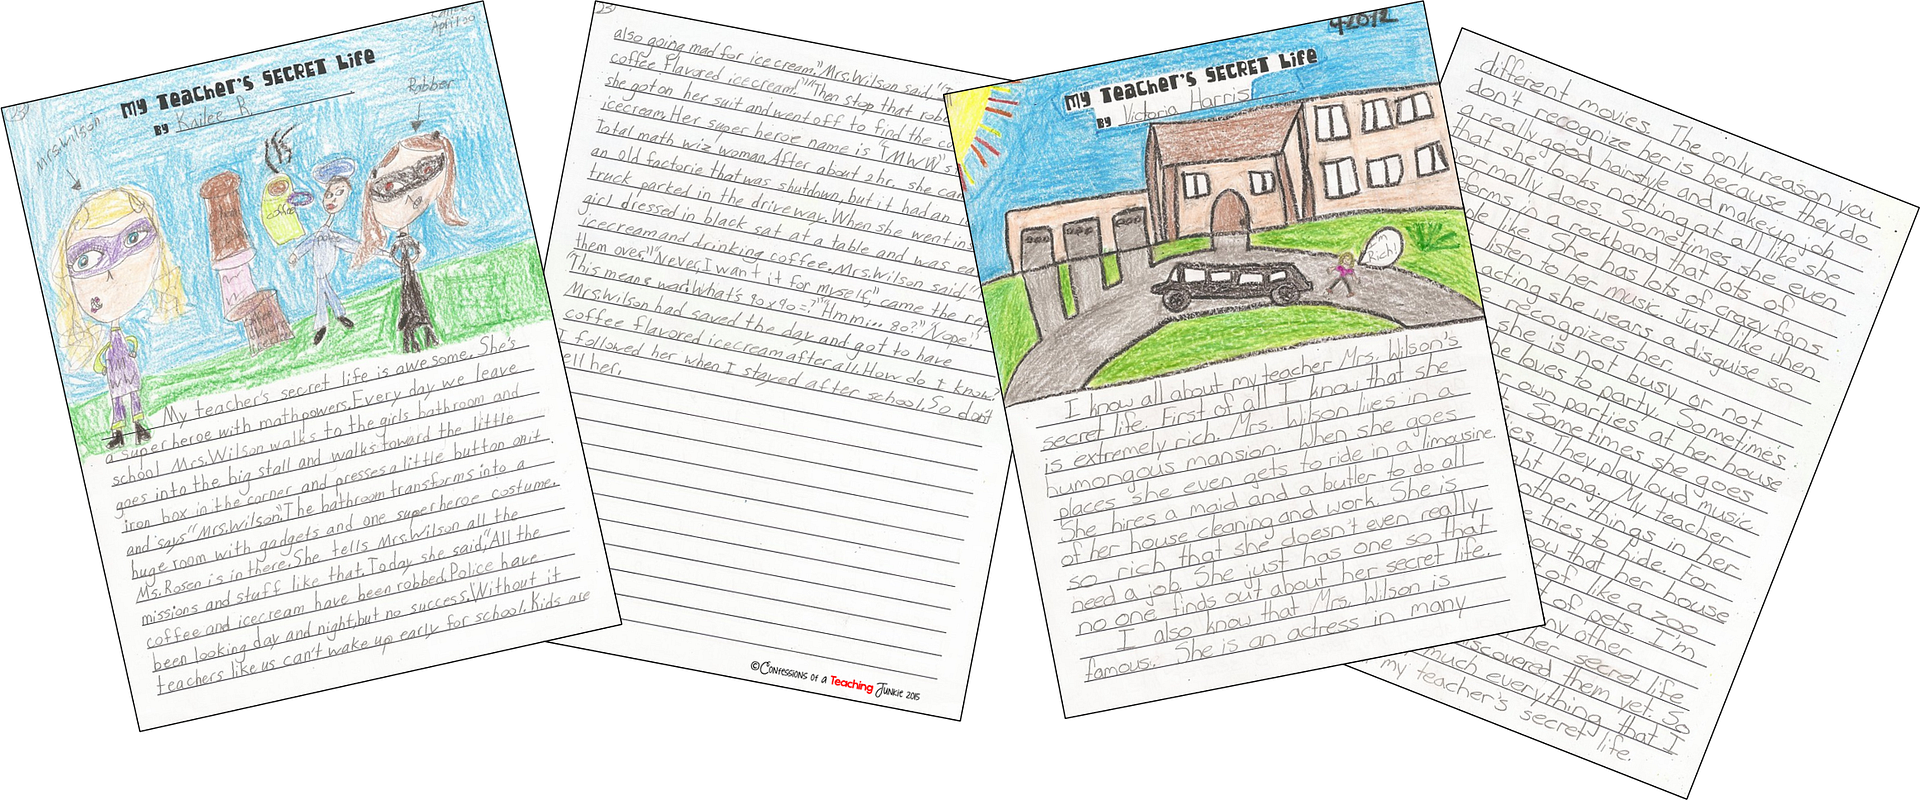 April 20
My Teacher's SECRET Life
By Kailee R.
Mrs. Wilson
Robber
coffee
My teacher's secret life is awesome. She's
a super heroe with math powers. Every day we leave
school Mrs. Wilson walks to the girls bathroom and
goes into the big stall and walks toward the little
iron box in the corner and presses a little button on it
and says "Mrs. Wilson." The bathroom transforms into a
huge room with gadgets and one super heroe costume.
Ms. Rosen is in there. She tells Mrs. Wilson all the
missions and stuff like that. Today she said, "All the
coffee and icecream have been robbed. Police have
been looking day and night, but no success. Without it
teachers like us can't wake up early for school. Kids are
also going mad for ice cream." Mrs. Wilson said, "I
coffee flavored icecream." "Then stop that robb
she got on her suit and went off to find the co
icecream. Her super heroe name is "TMWW"
Total math wiz woman. After about 2 hr. she cam
an old factorie that was shutdown, but it had an i
truck parked in the driveway. When she went in
girl dressed in black sat at a table and was ea
icecream and drinking coffee. Mrs. Wilson said,
them over." "Never, I want it for myself," came the rep
"This means war! What's 90x90=?" "Hmm... 80?" "Nope"
Mrs. Wilson had saved the day and got to have
coffee flavored icecream after all. How do I know
I followed her when I stayed after school. So don't
ell her.
©Confessions of a Teaching Junkie 2015
My Teacher's SECRET Life
By Victoria Harris
I'm Rich!
I know all about my teacher Mrs. Wilson's
secret life. First of all I know that she
is extremely rich. Mrs. Wilson lives in a
humongous mansion. When she goes
places she even gets to ride in a limousine.
She hires a maid and a butler to do all
of her house cleaning and work. She is
so rich that she doesn't even really
need a job. She just has one so that
no one finds out about her secret life.
I also know that Mrs. Wilson is
famous. She is an actress in many
different movies. The only reason you
don't recognize her is because they do
a really good hairstyle and makeup job
that she looks nothing at all like she
normally does. Sometimes she even
forms in a rockband that lots of
le like. She has lots of crazy fans
listen to her music. Just like when
acting she wears a disguise so
e recognizes her.
she is not busy or not
he loves to party. Sometimes
r own parties at her house
Sometimes she goes
es. They play loud music
ht long. My teacher
other things in her
e tries to hide. For
ow that her house
t of like a zoo
t of pets. I'm
ny other
her secret life
iscovered them yet. So
much everything that I
my teacher's secret life.